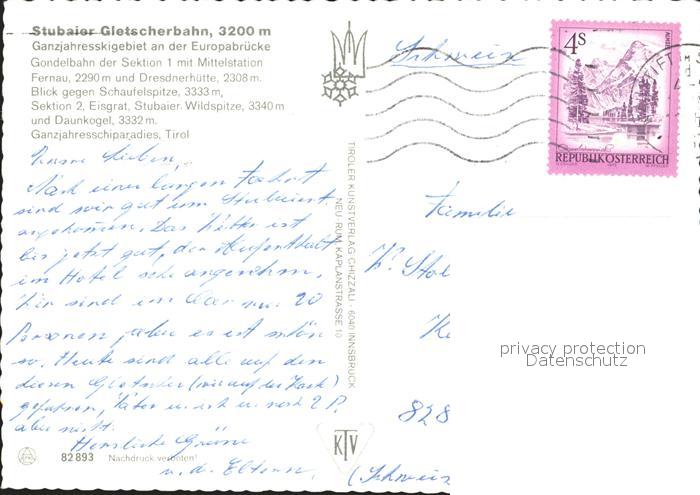 Stubaier Gletscherbahn, 3200 m
Ganzjahresskigebiet an der Europabrücke
Gondelbahn der Sektion 1 mit Mittelstation
Fernau, 2290 m und Dresdnerhütte, 2308 m.
Blick gegen Schaufelspitze, 3333 m,
Sektion 2, Eisgrat, Stubaier Wildspitze, 3340 m
und Daunkogel, 3332 m.
Ganzjahresschiparadies, Tirol
Lieben,
Nach einer langen Fahrt
sind wir gut im Stubaital
angekommen. Das Wetter ist
bis jetzt gut, der Aufenthalt
im Hotel sehr angenehm.
Wir sind im Car nur 20
Personen, aber es ist schön
so. Heute sind alle auf den
diesen Gletscher (wie auf der Karte)
gefahren, Vater u. ich u. noch 2 P.
aber nicht.
Herzliche Grüsse
v. d. Eltern
82 893 Nachdruck verboten!
TIROLER KUNSTVERLAG CHIZZALI · 6040 INNSBRUCK
NEU-RUM, KAPLANSTRASSE 10
KTV
Schweiz
4 S
REPUBLIK ÖSTERREICH
Familie
Stol
828
(Schweiz
privacy protection
Datenschutz